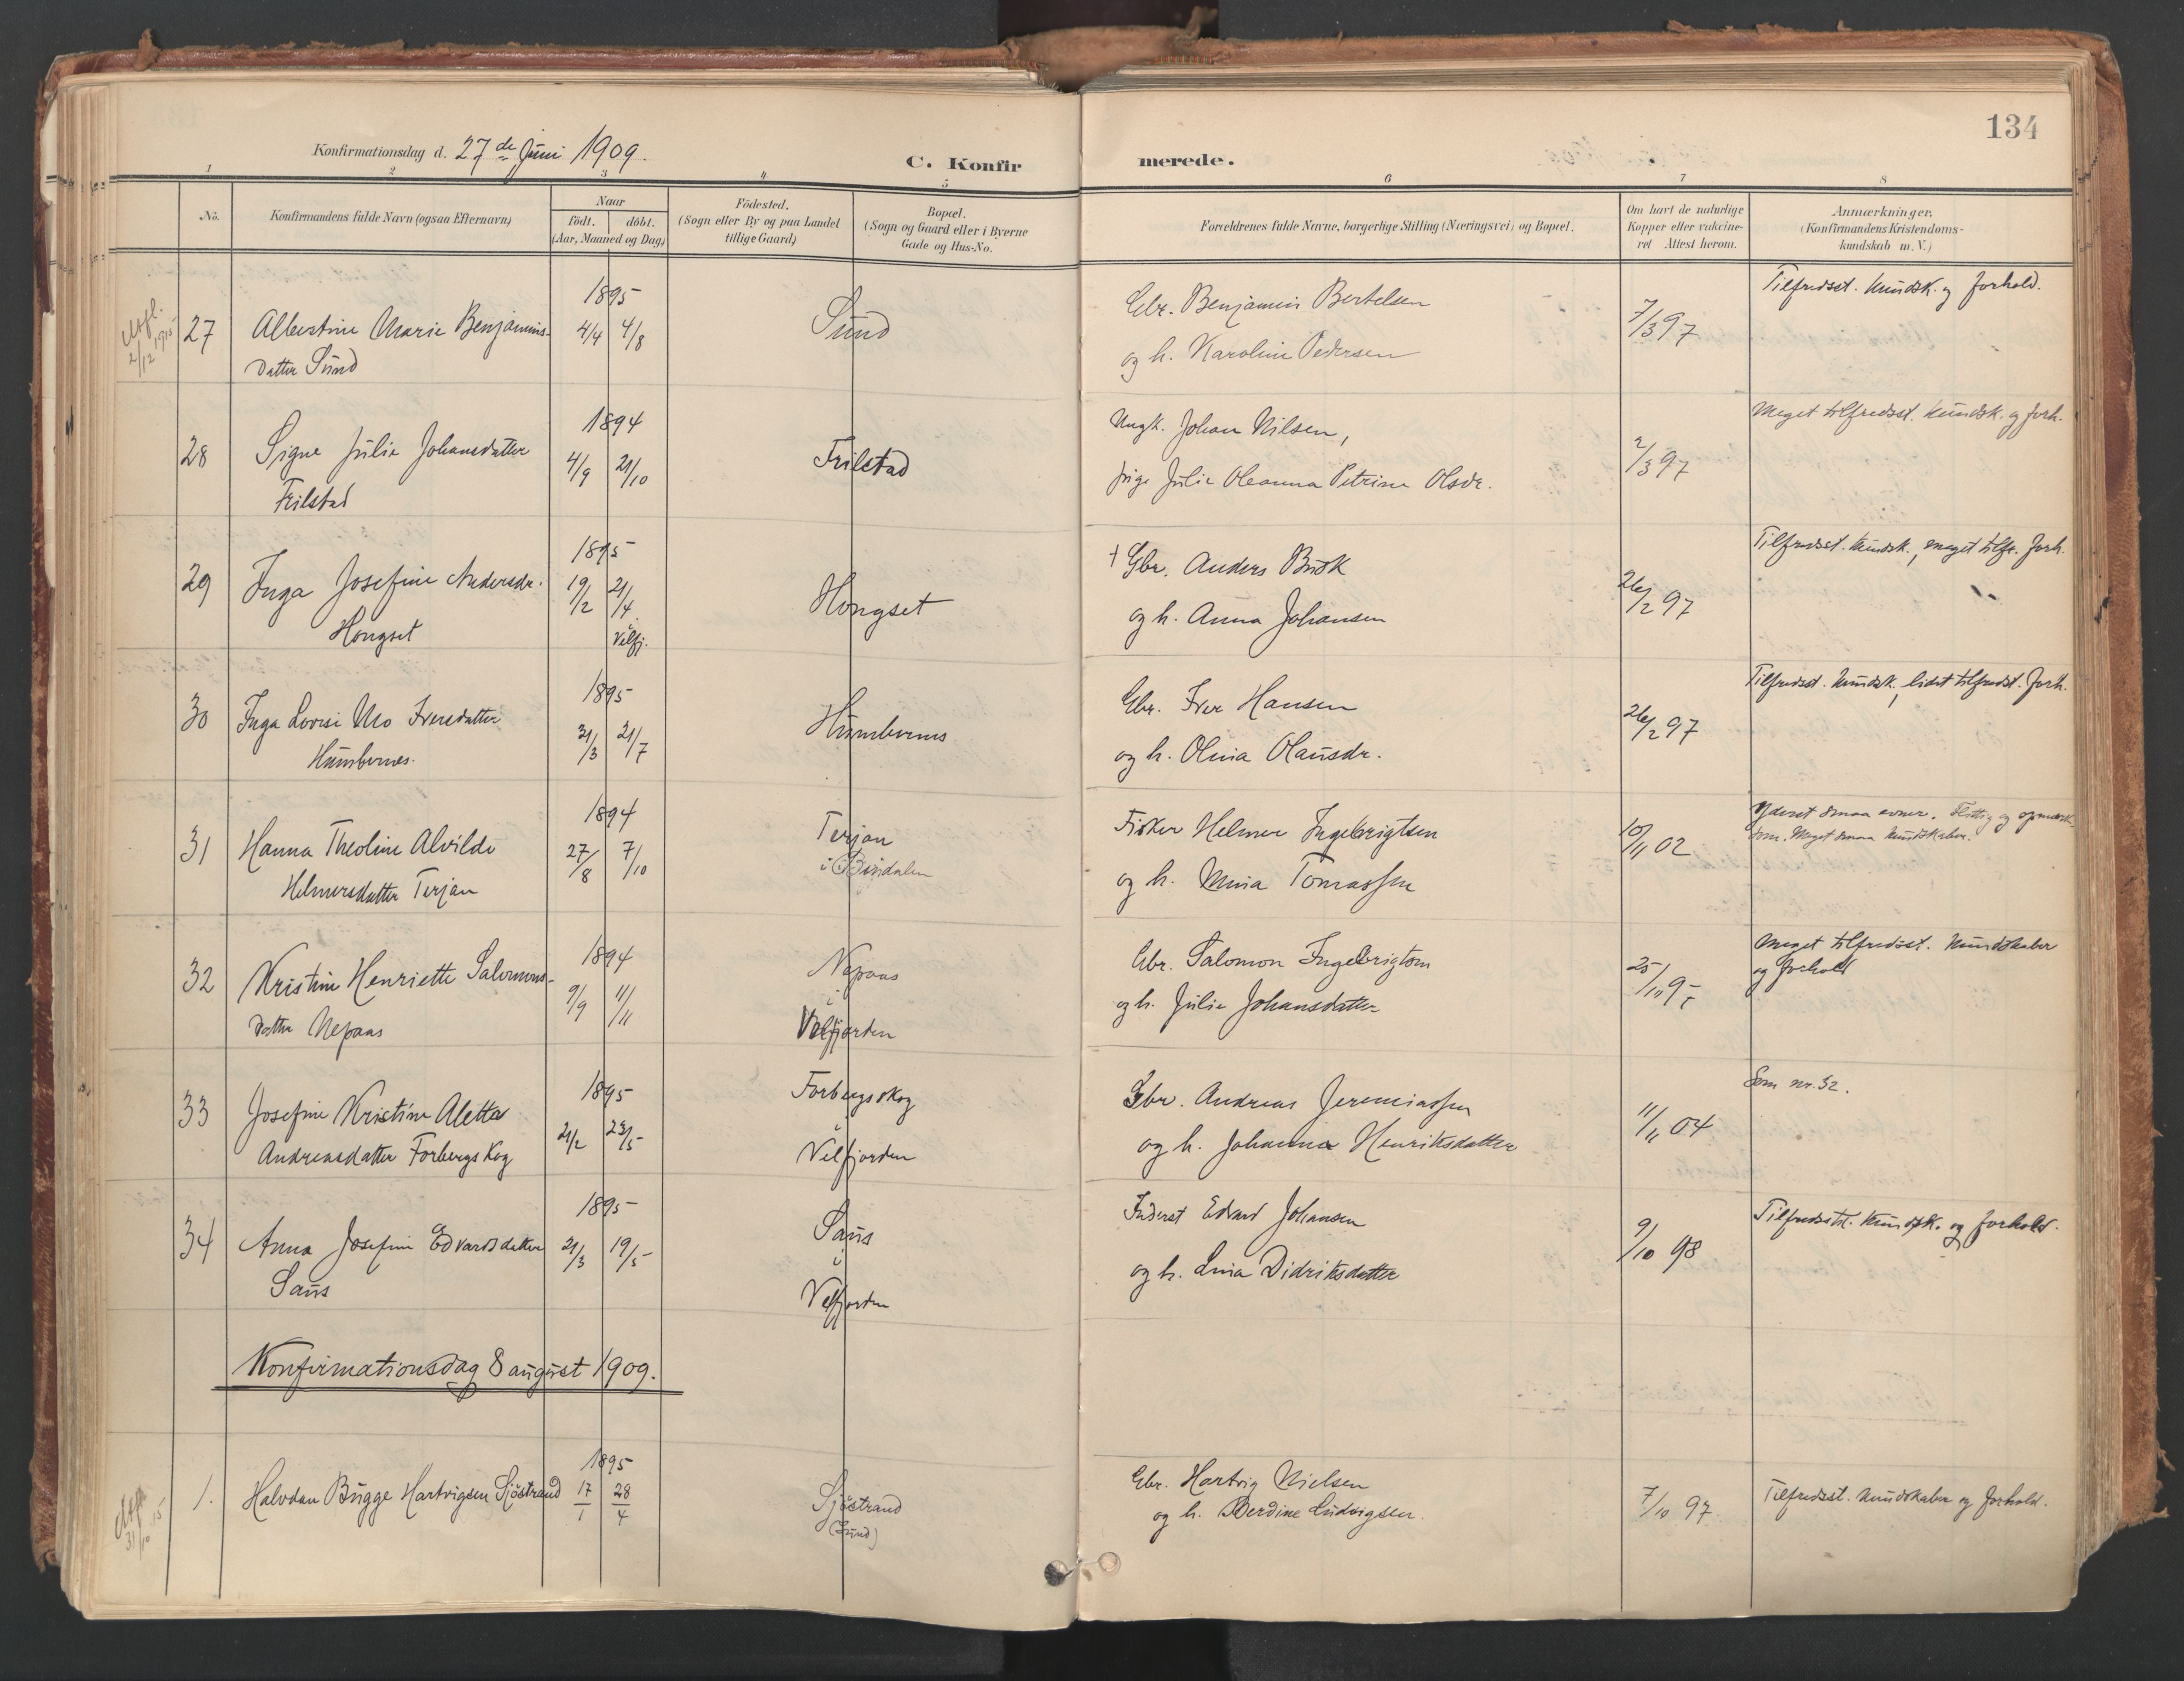 134
Konfirmationsdag d. 27de Juni 1909.
C. Konfir merede.
1 2 3 4 5 6 7 8
No.
Konfirmandens fulde Navn (ogsaa Efternavn)
Naar
födt. döbt.
(Aar, Maaned og Dag)
Födested.
(Sogn eller By og paa Landet
tillige Gaard)
Bopæl.
(Sogn og Gaard eller i Byerne
Gade og Hus-No.
Forældrenes fulde Navne, borgerlige Stilling (Næringsvei) og Bopæl.
Om havt de naturlige
Kopper eller vakcine-
ret Attest herom.
Anmærkninger.
(Konfirmandens Kristendoms-
kundskab m. V.)
2/12 1915
27 Albertine Marie Benjamins-
datter Sund
1895
4/4 4/8
Sund
Gbr. Benjamin Bertelsen
og h. Karoline Pedersen
7/3 97
Tilfredsst. kundsk. og forhold.
28 Signe Julie Johansdatter
Frilstad
1894
4/9 21/10
Frilstad
Ungk. Johan Nilsen,
pige Julie Oleanna Petrine Olsdr.
2/3 97
Meget tilfredsst. kundsk. og forh.
29 Inga Josefine Andersdr.
Hongset
1895
19/2 21/4
i Velfj.
Hongset
† Gbr. Anders Busk
og h. Anna Johansen
26/2 97
Tilfredsst. kundsk., meget tilfr. forh.
30 Inga Lovise Mo Iversdatter
Humbernes.
1895
31/3 21/7
Humbernes
Gbr. Iver Hansen
og h. Olina Olausdr.
26/2 97
Tilfredsst. kundsk., lidet tilfredsst. forh.
31 Hanna Theoline Alvilde
Helmersdatter Terjan
1894
27/8 7/10
Terjan
i Bindalen
Fisker Helmer Ingebrigtsen
og h. Mina Tomassen
10/11 02
Yderst smaa evner. Flittig og opmærk-
som. Meget smaa kundskaber.
32 Kristine Henriette Salomons-
datter Nepaas
1894
9/9 11/11
Nepaas
i
Velfjorden
Gbr. Salomon Ingebrigtsen
og h. Julie Johansdatter
25/11 95
Meget tilfredsst. kundskaber
og forhold
33 Josefine Kristine Aletta
Andreasdatter Forbergskog
1895
21/2 23/5
Forbergsskog
i
Velfjorden
Gbr. Andreas Jeremiassen
og h. Johanna Henriksdatter
11/11 04
Som nr. 32.
34 Anna Josefine Edvardsdatter
Saus
1895
21/3 19/5
Saus
i
Velfjorden
Inderst Edvard Johansen
og h. Lina Didriksdatter
9/10 98
Tilfredsst. kundsk. og forhold.
Konfirmationsdag 8 august 1909.
31/10 15
1. Halvdan Bugge Hartvigsen Sjöstrand
1895
17/1 28/4
Sjöstrand
(Sund)
Gbr. Hartvig Nielsen
og h. Berdine Ludvigsen.
7/10 97.
Tilfredsst. kundskaber og forhold.